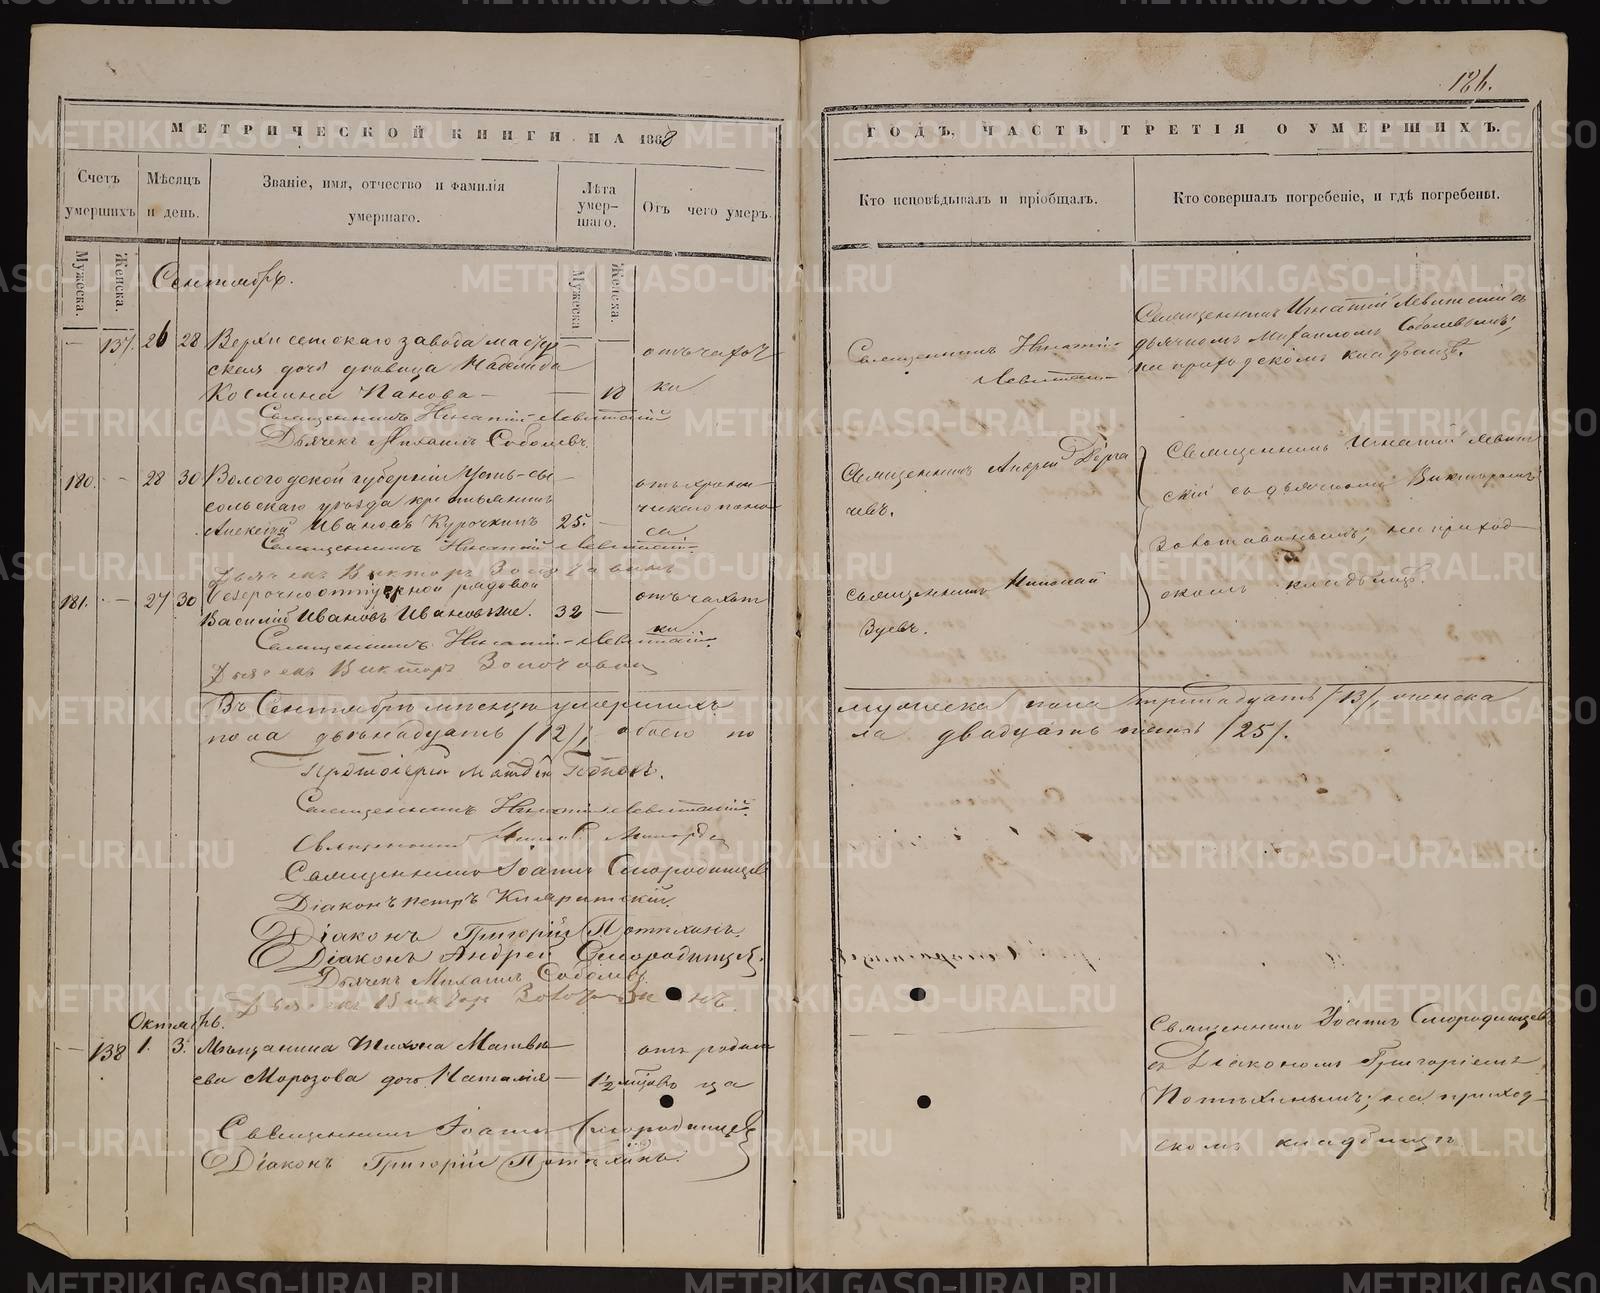 186.
МЕТРИЧЕСКОЙ КНИГИ НА 1868
ГОДЪ, ЧАСТЬ ТРЕТІЯ О УМЕРШИХЪ.
Счетъ умершихъ
Мѣсяцъ и день.
Званіе, имя, отчество и фамилія умершаго.
Лѣта умер-шаго.
Отъ чего умеръ.
Кто исповѣдывалъ и пріобщалъ.
Кто совершалъ погребеніе, и гдѣ погребены.
Мужеска.
Женска.
Мужеска
Женска.
Сентябрь.
137. 26 28 Верхисетскаго завода мастер-
ская дочь дѣвица
Космина Панова 18
отъ чахот
ки
Священникъ Игнатій Левитскій
Дьячекъ Михаилъ Соболевъ.
Священникъ Игнатій
Левитскій
Священникъ Игнатій Левитскій съ
дьячкомъ Михаиломъ Соболевымъ;
на приходскомъ кладбищѣ.
180. 28 30 Вологодской губерніи Усть-сы-
сольскаго уѣзда крестьянинъ
Алексѣй Ивановъ Курочкинъ 25.
отъ хрони
ческаго поно
са
Священникъ Игнатій Левитскій
Дьячекъ Викторъ Золотавинъ
Священникъ Андрей Дерга
чевъ.
Священникъ Игнатій Левит
скій съ дьячкомъ Викторомъ
Золотавинымъ; на приход
скомъ кладбищѣ.
181. 27 30 Безсрочноотпускной рядовой
Василій Ивановъ 32
отъ чахот
ки
Священникъ Игнатій Левитскій.
Дьячекъ Викторъ Золотавинъ
Священникъ Николай
Зуевъ.
Въ Сентябрѣ мѣсяцѣ умершихъ
мужеска пола тринадцать /13/, женска
пола двѣнадцать /12/, обоего по
ла двадцать пять /25/.
Протоіерей Матвѣй Поповъ.
Священникъ Игнатій Левитскій.
Священникъ
Священникъ Іоаннъ Смородинцевъ
Діаконъ Петръ
Діаконъ Григорій Потѣхинъ.
Діаконъ Андрей Смородинцевъ.
Дьячекъ Михаилъ Соболевъ
Дьячекъ Викторъ Золотавинъ.
Октябрь.
138 1. 3. Мѣщанина Тихона Матвѣ
ева Морозова дочь Наталія 1½ мѣсяцъ
отъ родим
ца
Священникъ Іоаннъ Смородинцевъ
Діаконъ Григорій Потѣхинъ.
Священникъ Іоаннъ Смородинцевъ
съ Діакономъ Григоріемъ
Потѣхинымъ; на приход
скомъ кладбищѣ
METRIKI.GASO-URAL.RU